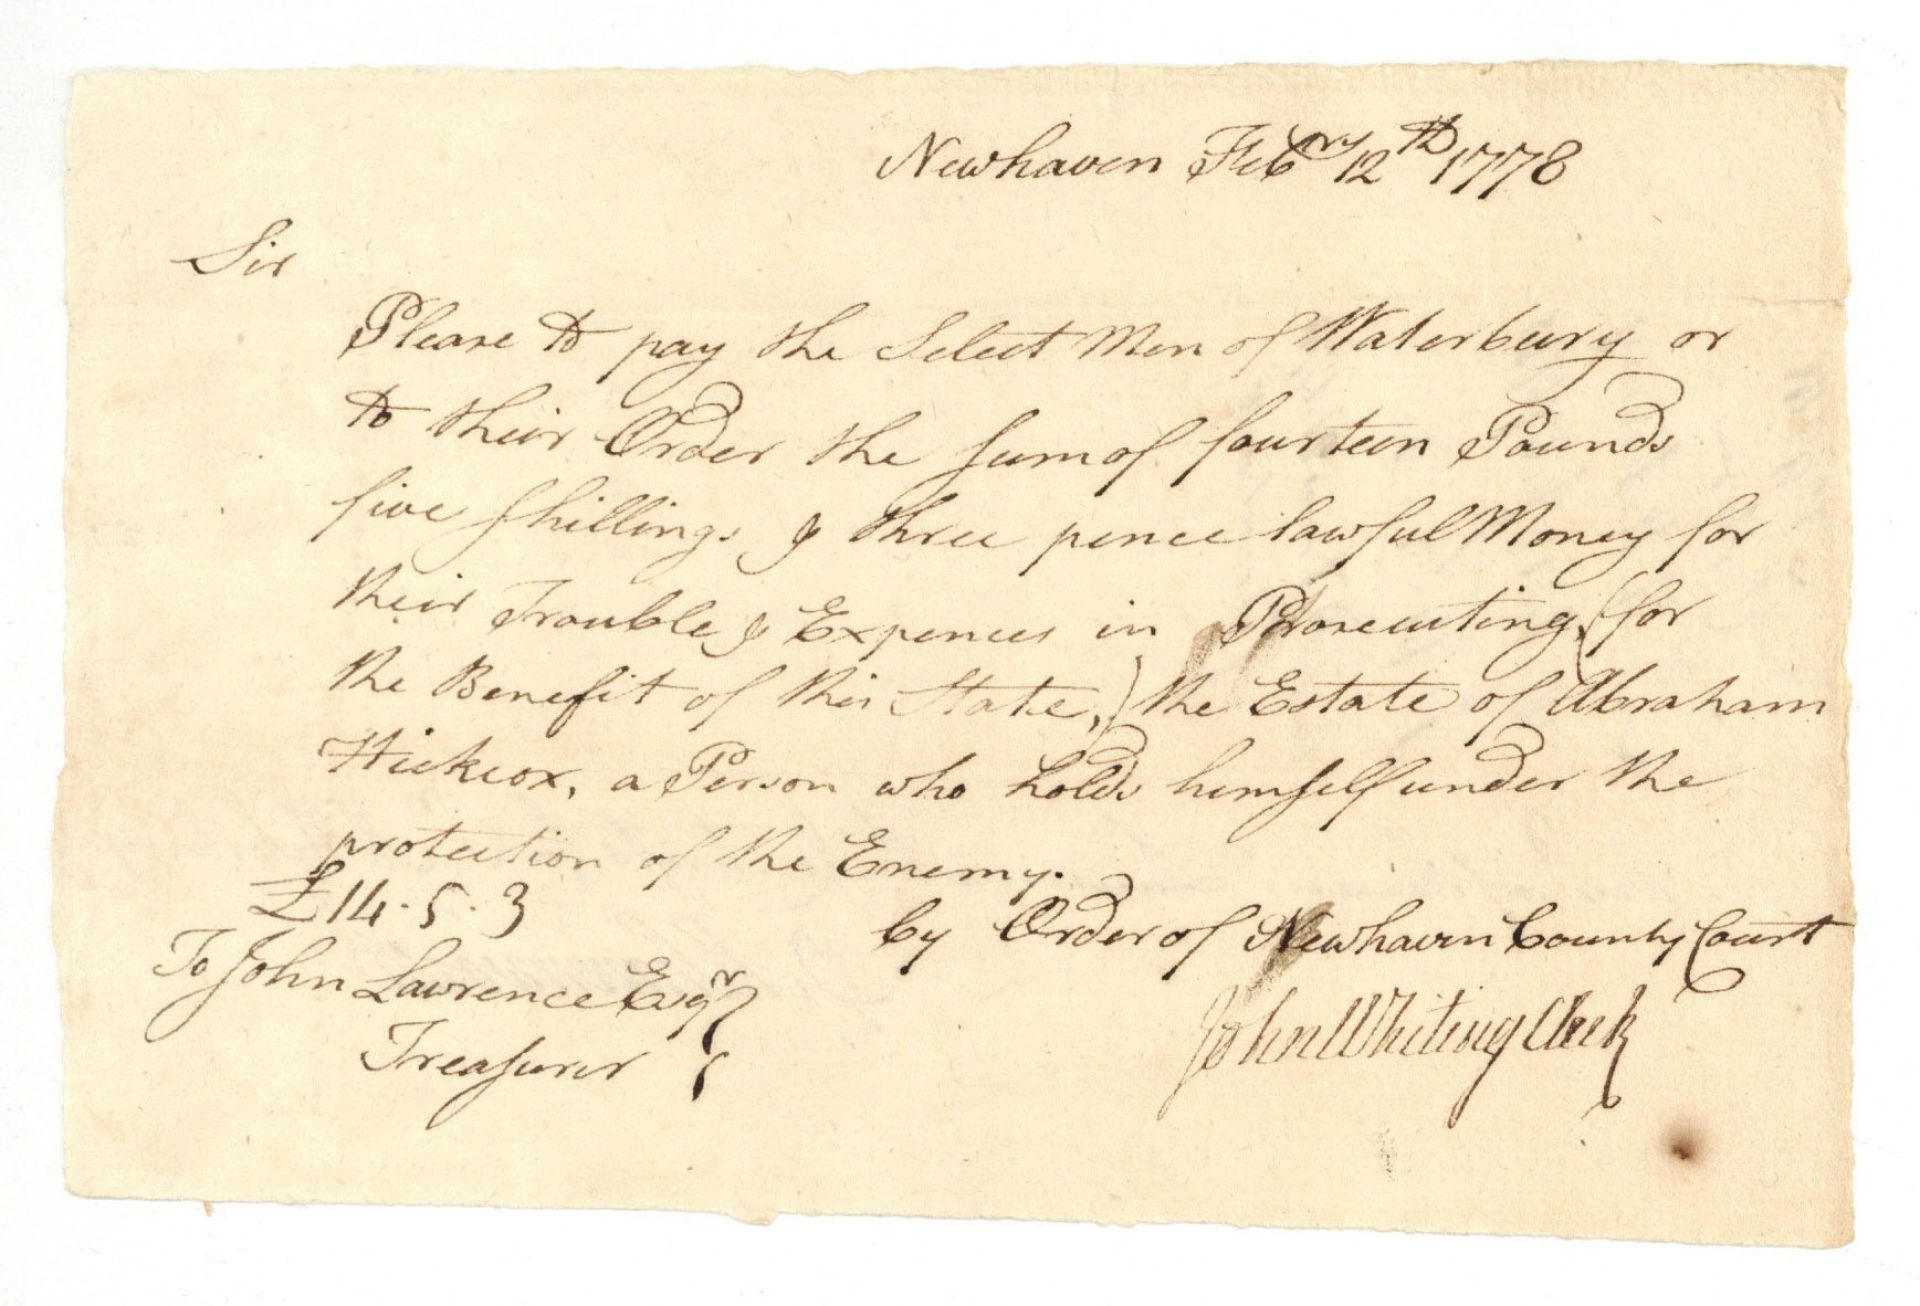 Newhaven Feb^ry 12^th 1778
Sir
Please to pay the Select Men of Waterbury or
to their Order the sum of fourteen Pounds
five shillings & three pence lawful Money for
their Trouble & Expences in Prosecuting, (for
the Benefit of this State,) the Estate of Abraham
Hickcox, a Person who holds himself under the
protection of the Enemy.
£14.5.3
by Order of Newhaven County Court
To John Lawrence Esq^r
Treasurer
John Whiting Clerk